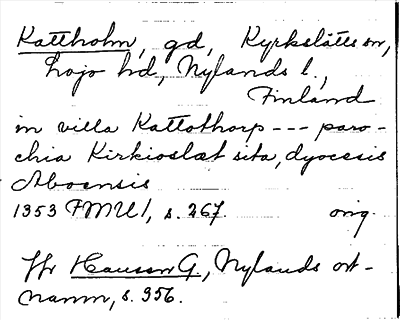 Kattholm, gd, Kyrkslätts sn,
Lojo hd, Nylands l.,
Finland
in villa Kattothorp --- paro-
chia Kirkioslæt sita, dyocesis
Aboensis
1353 FMU 1, s. 267. orig.
Jfr Hausen G., Nylands ort-
namn, s. 356.